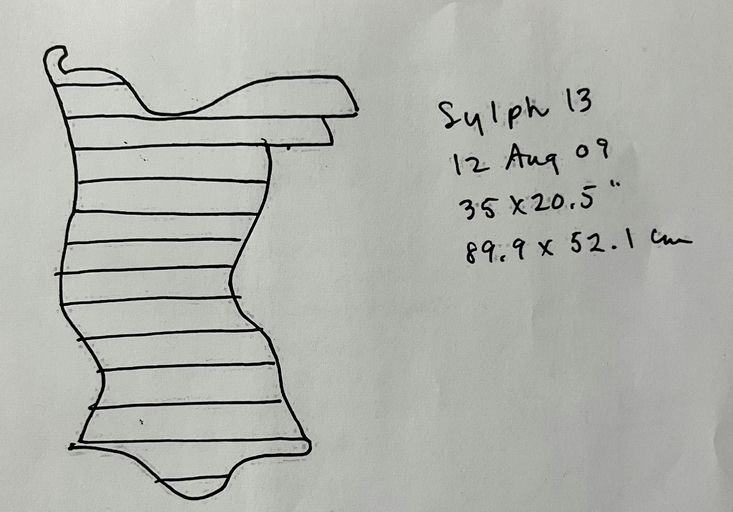 Sylph 13
12 Aug 09
35 x 20.5"
89.9 x 52.1 cm